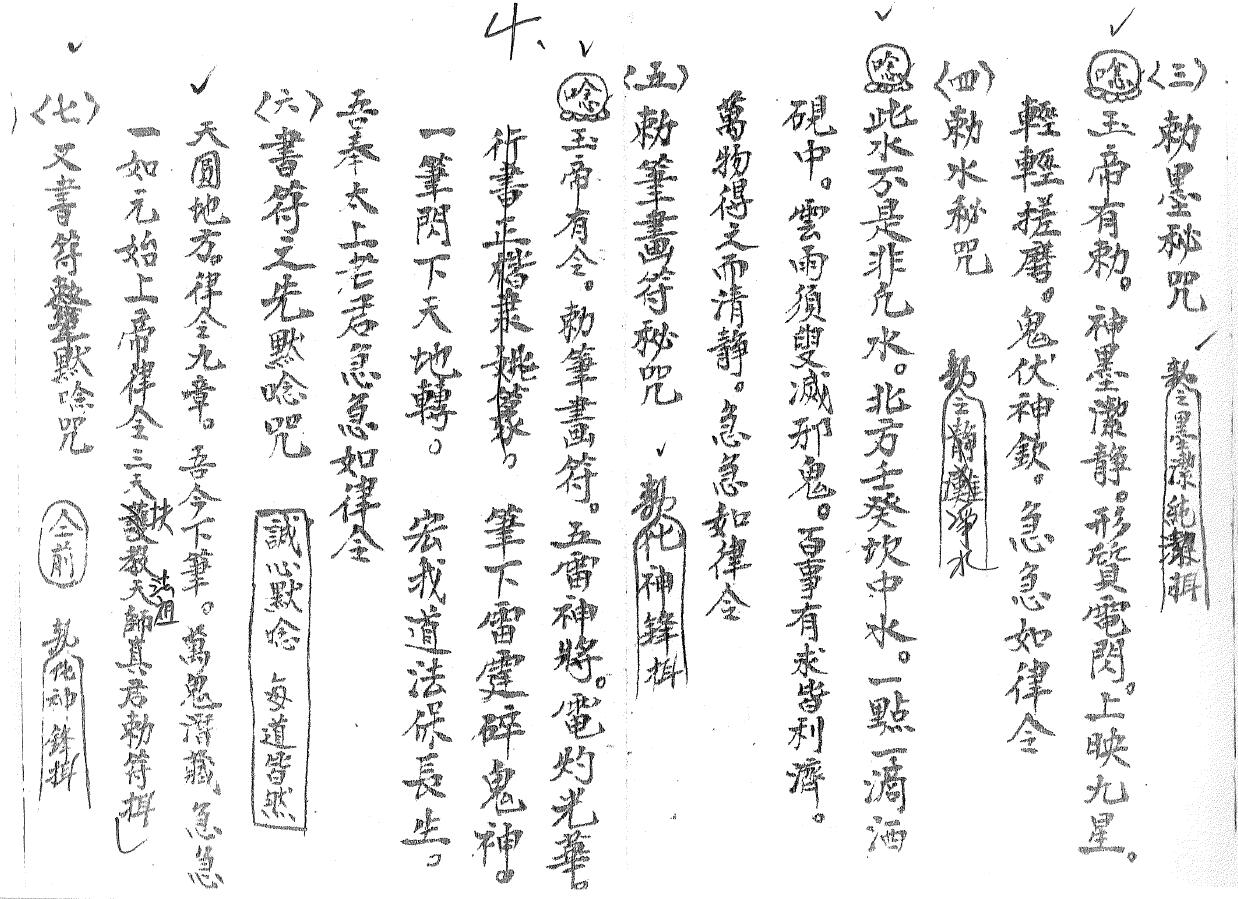 〈三〉勅墨秘咒
唸玉帝有勅。神墨潔靜。形質電閃。上映九星。
輕輕搓磨。鬼伏神欽。急急如律令
〈四〉勅水秘咒
唸此水不是非凡水。北方壬癸坎中水。一點一滴洒
硯中。雲雨須臾滅邪鬼。百事有求皆利濟。
萬物得之而清靜。急急如律令
4.
〈五〉勅筆畫符秘咒 勅化神鋒揖
唸玉帝有令。勅筆畫符。五雷神將。電灼光華。
筆下雷霆碎鬼神。
一筆閃下天地轉。 宏我道法保長生。
吾奉太上老君急急如律令
〈六〉書符之先默唸咒 誠心默唸 每道皆然
天圓地方。律令九章。吾今下筆。萬鬼潛藏 急急
一如元始上帝律令三天扶教天師真君勅符揖
法祖
〈七〉又書符 默唸咒 仝前 化神鋒揖